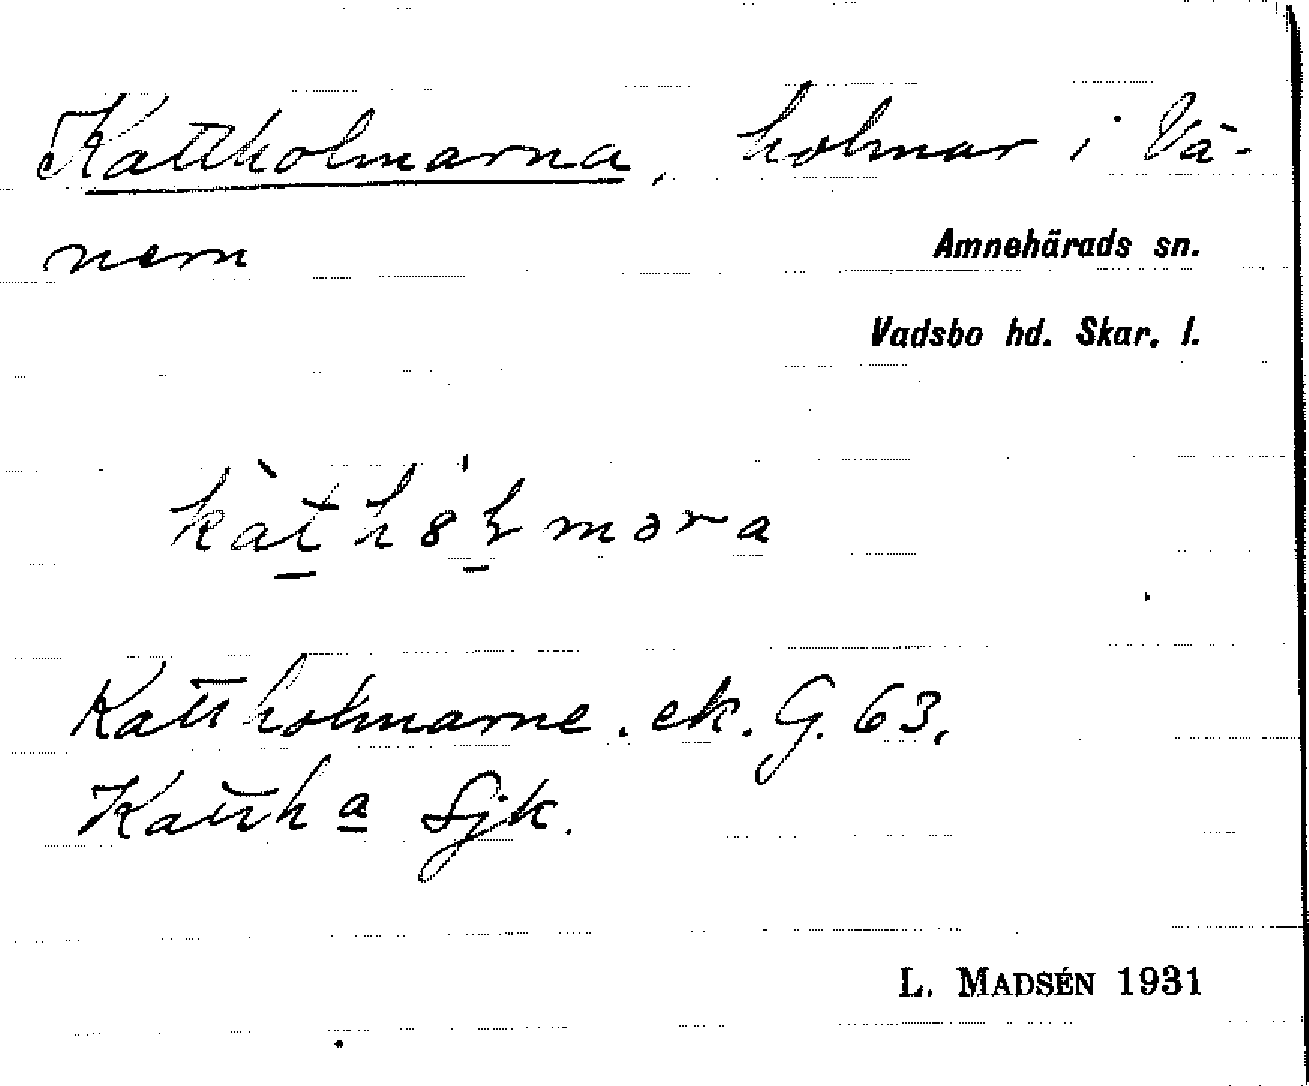 Kattholmarna, holmar i Vä-
nern
Amnehärads sn.
Vadsbo hd. Skar. l.
Kattholmarne. ek. G. 63.
Katth a Sjk.
L. MADSÉN 1931